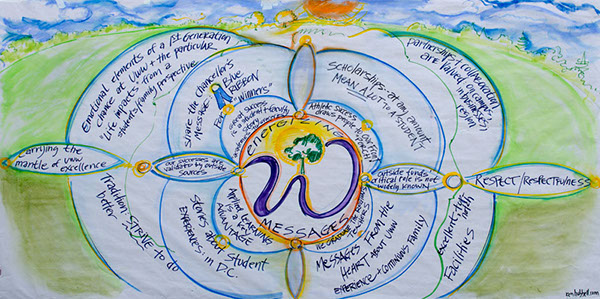 Emotional elements of a 1st Generation
chance at UWW + the particular
"Life impacts" from a
student/family perspective
Partnerships + Collaboration
are valued on campus,
in businesses,
region
share the chancellor's
message
Blue
Ribbon
"winners"
For
overall success
Scholarships at any amounts
MEAN A LOT TO A STUDENT
Athletic success
draws people to
energizing
MESSAGES
carrying the
mantle of UWW
excellence
our successes are
validated by outside
sources
outside funds'
critical role is not
widely known
RESPECT/RESPECTFULNESS
Tradition: STRIVE to do
better
Stories about Student
EXPERIENCES in D.C.
Applied LEARNING
is a
ADVANTAGE
WE GRADUATE the
Messages From the
HEART about UWW
EXPERIENCE + CONTINUING Family
Facilities